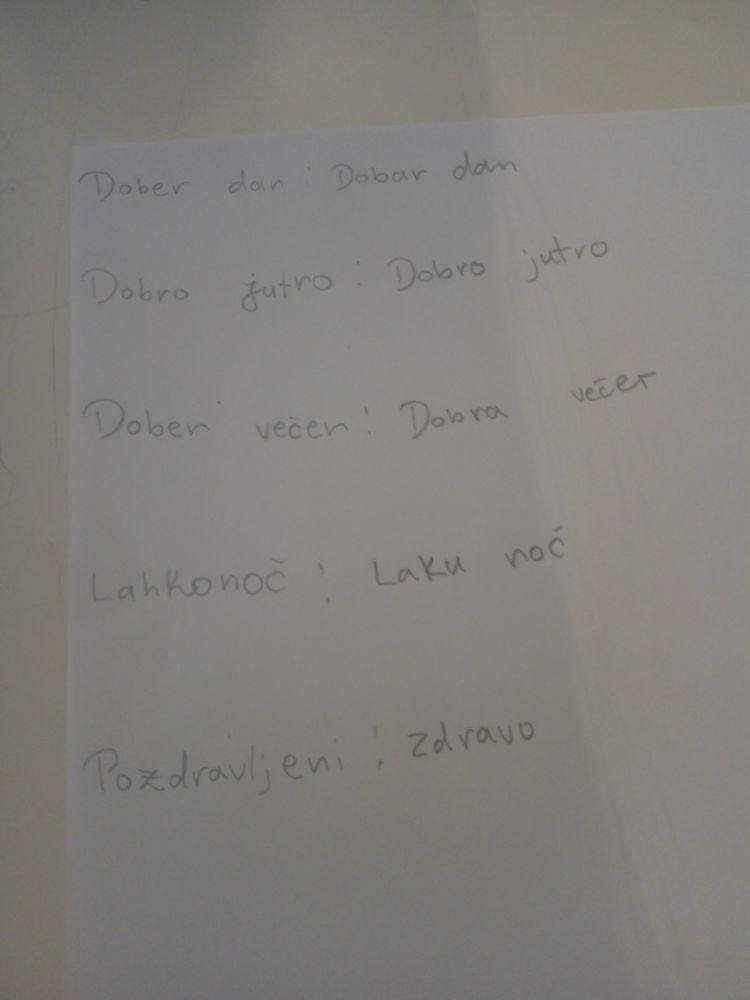 Dober dan : Dobar dan
Dobro jutro : Dobro jutro
Dober večer : Dobra večer
Lahko noč : Laku noć
Pozdravljeni : zdravo